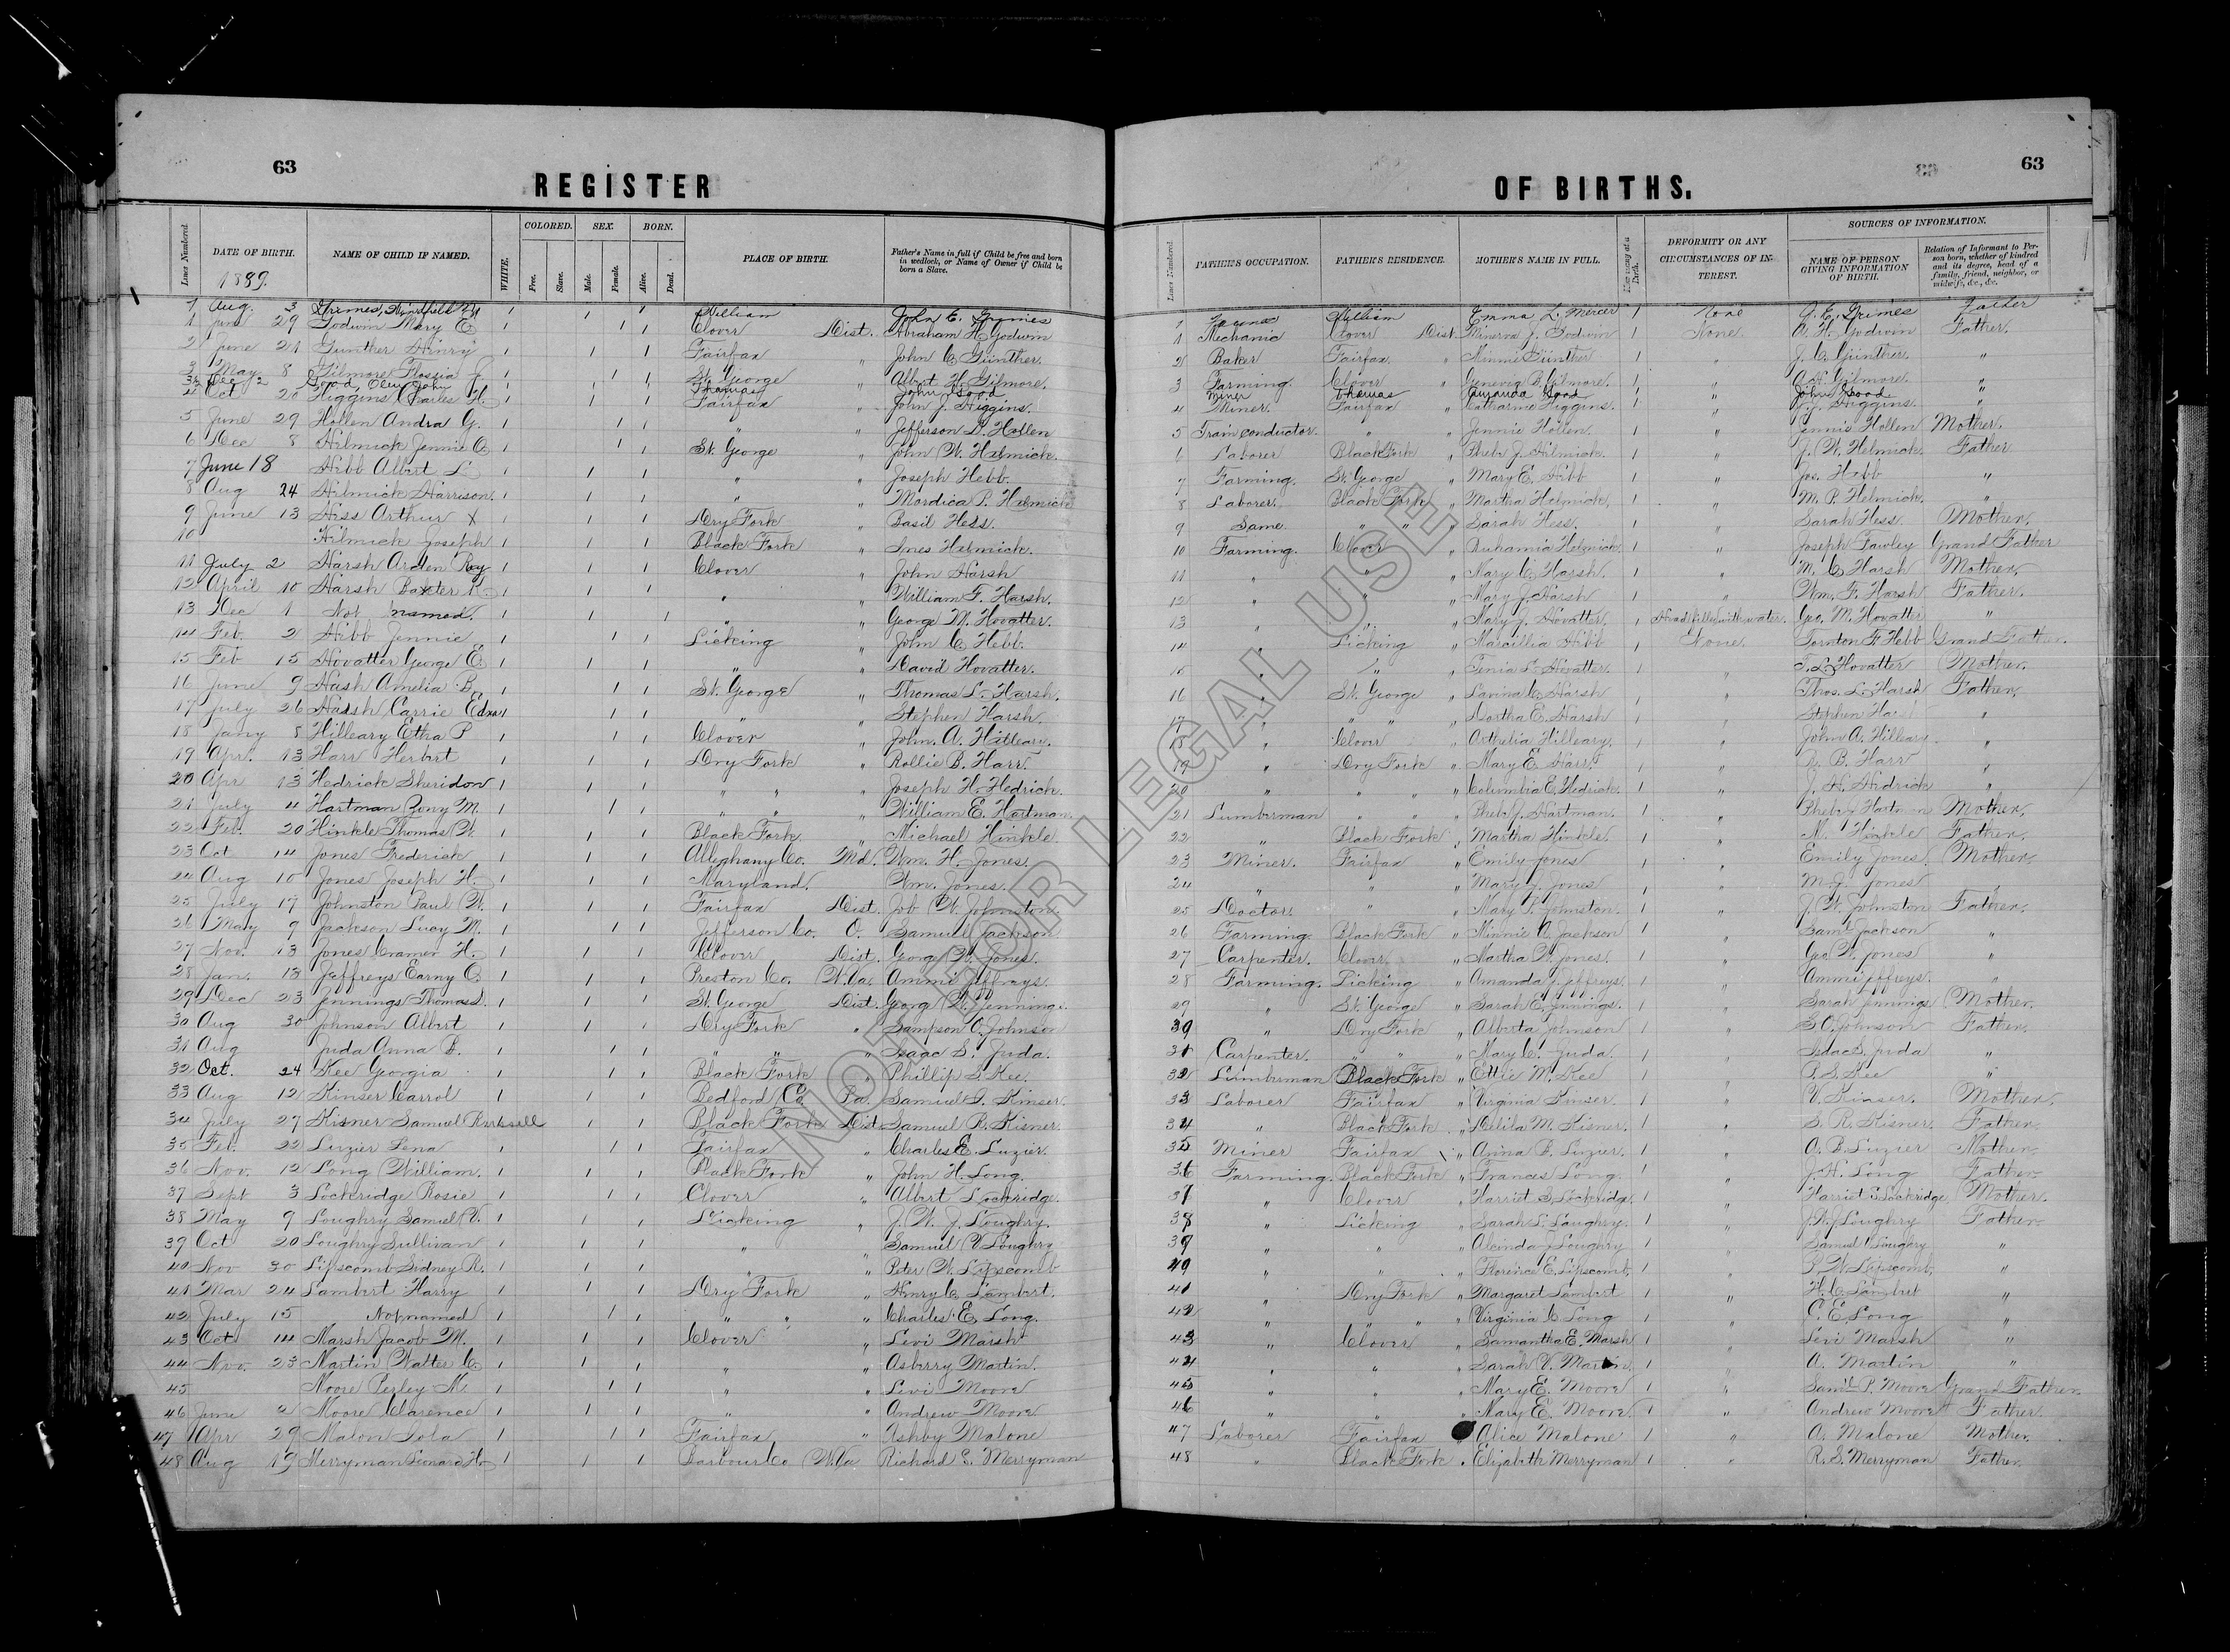 63
63
REGISTER OF BIRTHS.
Lines Numbered. DATE OF BIRTH. NAME OF CHILD IF NAMED. WHITE. COLORED. Free. Slave. SEX. Male. Female. BORN. Alive. Dead. PLACE OF BIRTH. Father's Name in full if Child be free and born in wedlock, or Name of Owner if Child be born a Slave.
Lines Numbered. FATHER'S OCCUPATION. FATHER'S RESIDENCE. MOTHER'S NAME IN FULL. How many at a Birth. DEFORMITY OR ANY CIRCUMSTANCES OF INTEREST. SOURCES OF INFORMATION. NAME OF PERSON GIVING INFORMATION OF BIRTH. Relation of Informant to Person born, whether of kindred and its degree, head of a family, friend, neighbor, or midwife, &c., &c.
1889.
1 Aug. 3 Grimes, 1 1 1 William John C. Grimes 1 William Emma L. Mercer 1 None J. C. Grimes Father
1 June 29 Godwin Mary C. 1 1 1 Clover Dist. Abraham H. Godwin 1 Mechanic Clover Dist. Minerva J. Godwin 1 None A. H. Godwin Father.
2 June 21 Gunther Henry 1 1 1 Fairfax " John C. Gunther. 2 Baker Fairfax " Minnie Günther 1 " J. C. Günther "
3 May 8 Gilmore Flossia 1 1 1 St. George " Albert H. Gilmore. 3 Farming. Clover " Gilmore. 1 " A. H. Gilmore. "
3½ Dec 2 Good, John 1 1 1 Thomas John Good Miner Thomas Amanda Good 1 John Good "
4 Oct 20 Higgins Charles H. 1 1 1 Fairfax " John J. Higgins. 4 Miner. Fairfax " Catharine Higgins. 1 " J. J. Higgins. "
5 June 29 Hollen Andra G. 1 1 1 " " Jefferson D. Hollen 5 Train conductor. " " Jennie Hollen. 1 " Jennie Hollen Mother.
6 Dec 8 Helmick Jennie C. 1 1 1 St. George " John W. Helmick. 6 Laborer Black Fork " Phebe J. Helmick. 1 " J. W. Helmick. Father
7 June 18 Hebb Albert L. 1 1 1 " " Joseph Hebb. 7 Farming. St. George " Mary E. Hebb 1 " Jos. Hebb "
8 Aug 24 Helmick Harrison. 1 1 1 " " Mordica P. Helmick 8 Laborer. Black Fork " Martha Helmick. 1 " M. P. Helmick. "
9 June 13 Hess Arthur X 1 1 1 Dry Fork " Basil Hess. 9 Same. " " " Sarah Hess. 1 " Sarah Hess Mother.
10 Helmick Joseph 1 1 1 Black Fork " Helmick. 10 Farming. Clover " Ruhamia Helmick. 1 " Joseph Fawley Grand Father
11 July 2 Harsh Arden Roy 1 1 1 Clover " John Harsh 11 " " " Mary C. Harsh. 1 " M. C. Harsh Mother,
12 April 10 Harsh Baxter K. 1 1 1 " " William F. Harsh. 12 " " " Mary J. Harsh 1 " Wm. F. Harsh Father.
13 Dec 1 Not named. 1 1 1 " " George M. Hovatter. 13 " " " Mary J. Hovatter, 1 Head filled with water. Geo. M. Hovatter "
14 Feb. 2 Hebb Jennie 1 1 1 Licking " John C. Hebb. 14 " Licking " Marcillia Hebb 1 None. Tornton F. Hebb Grand Father.
15 Feb 15 Hovatter George E. 1 1 1 " " David Hovatter. 15 " " " Tenia L. Hovatter. 1 " T. L. Hovatter Mother.
16 June 9 Hash Amelia B. 1 1 1 St. George " Thomas L. Harsh. 16 " St. George " Lavina C. Harsh 1 " Thos. L. Harsh Father,
17 July 26 Harsh Carrie Edna 1 1 1 " " Stephen Harsh. 17 " " " " Dortha E. Harsh 1 " Stephen "
18 Jany 8 Hilleary Etha P 1 1 1 Clover " John. A. Hilleary. 18 " Clover " Arthelia Hilleary. 1 " John A. Hilleary "
19 Apr. 13 Harr Herbert 1 1 1 Dry Fork " Rollie B. Harr. 19 " Dry Fork " Mary E. Harr 1 " R. B. Harr "
20 Apr 13 Hedrick Sheridon 1 1 1 " " " Joseph H. Hedrich. 20 " " " " Columbia E. Hedrick. 1 " J. H. Hedrick "
21 July 4 Hartman Zony M. 1 1 1 " " William E. Hartman. 21 Lumberman " " " Phebe J. Hartman. 1 " Phebe J. Mother,
22 Feb. 20 Hinkle Thomas W. 1 1 1 Black Fork. " Michael Hinkle 22 " Black Fork " Martha Hinkle. 1 " M. Hinkle Father.
23 Oct 14 Jones Frederick 1 1 1 Alleghany Co. Md. Wm. H. Jones. 23 Miner. Fairfax " Emily Jones 1 " Emily Jones. Mother.
24 Aug 10 Jones Joseph H. 1 1 1 Maryland. Wm. Jones. 24 " " " Mary J. Jones 1 " M. J. Jones "
25 July 17 Johnston Paul W. 1 1 1 Fairfax Dist. Job W. Johnston. 25 Doctor. " " Mary P. Johnston. 1 " J. W. Johnston Father.
26 May 9 Jackson Lucy M. 1 1 1 Jefferson Co. O. Samuel Jackson 26 Farming. Black Fork " Minnie A. Jackson 1 " Saml Jackson "
27 Nov. 13 Jones Cramer H. 1 1 1 Clover Dist. George W. Jones. 27 Carpenter. Clover " Martha W. Jones. 1 " Geo W. Jones "
28 Jan. 13 Jeffreys Earny C. 1 1 1 Preston Co. W.Va. Ammi Jeffreys. 28 Farming. Licking " Amanda J. Jeffreys. 1 " Ammi Jeffreys. "
29 Dec 23 Jennings Thomas D. 1 1 1 St. George Dist. George W. Jennings. 29 " St. George " Sarah E. Jennings. 1 " Sarah Jennings Mother.
30 Aug 30 Johnson Albert 1 1 1 Dry Fork " Sampson O. Johnson 30 " Dry Fork " Alberta Johnson 1 " S. O. Johnson Father.
31 Aug Juda Anna B. 1 1 1 " " " Isaac S. Juda. 31 Carpenter. " " " Mary C. Juda. 1 " Isaac S. Juda "
32 Oct. 24 Kee Georgia 1 1 1 Black Fork " Phillip S. Kee. 32 Lumberman Black Fork " Ettie M. Kee 1 " P. S. Kee "
33 Aug 12 Kinser Carrol 1 1 1 Bedford Co. Pa. Samuel Kinser. 33 Laborer Fairfax " Virginia Kinser. 1 " V. Kinser. Mother.
34 July 27 Kisner Samuel 1 1 Black Fork Dist. Samuel R. Kisner. 34 " Black Fork " Delila M. Kisner. 1 " S. R. Kisner. Father.
35 Feb. 22 Luzier Lena 1 1 1 Fairfax " Charles E. Luzier. 35 Miner Fairfax " Anna B. Luzier. 1 " A. B. Luzier Mother.
36 Nov. 12 Long William. 1 1 1 Black Fork " John H. Long. 36 Farming. Black Fork " Frances Long. 1 " J. H. Long Father.
37 Sept 3 Lockridge Rosie 1 1 1 Clover " Albert Lockridge. 37 " Clover " Harriet S. Lockridge. 1 " Harriet S. Lockridge, Mother.
38 May 9 Loughry Samuel V. 1 1 1 Licking " J. W. J. Loughry. 38 " Licking " Sarah L. Loughry. 1 " J. W. J. Loughry Father.
39 Oct 20 Loughry Sullivan 1 1 1 " " Samuel V. Loughry 39 " " " Alcinda J. Loughry 1 " Samuel V. Loughry "
40 Nov 30 Lipscomb Sidney R. 1 1 1 " " Peter W. Lipscomb 40 " " " Florence E. Lipscomb. 1 " P. W. Lipscomb. "
41 Mar 24 Lambert Harry 1 1 1 Dry Fork " Henry C. Lambert. 41 " Dry Fork " Margaret Lambert 1 " H. C. Lambert "
42 July 15 Not named 1 1 1 " " " Charles E. Long. 42 " " " " Virginia C. Long 1 " C. E. Long "
43 Oct 14 Marsh Jacob M. 1 1 1 Clover " Levi Marsh 43 " Clover " Samantha E. Marsh 1 " Levi Marsh "
44 Nov. 23 Martin Walter C. 1 1 1 " " Asberry Martin. 44 " " " Sarah V. Martin. 1 " A. Martin "
45 Moore Perley M. 1 1 1 " " Levi Moore 45 " " " Mary E. Moore 1 " Saml P. Moore Grand Father.
46 June 2 Moore Clarence 1 1 1 " " Andrew Moore. 46 " " " Mary E. Moore. 1 " Andrew Moore Father.
47 Apr 29 Malon Lola 1 1 1 Fairfax " Ashby Malone 47 Laborer Fairfax " Alice Malone 1 " A. Malone Mother.
48 Aug 19 Merryman Leonard H. 1 1 1 Barbour Co W.Va Richard S. Merryman 48 " Black Fork " Elizabeth Merryman 1 " R. S. Merryman Father.
NOT FOR LEGAL USE